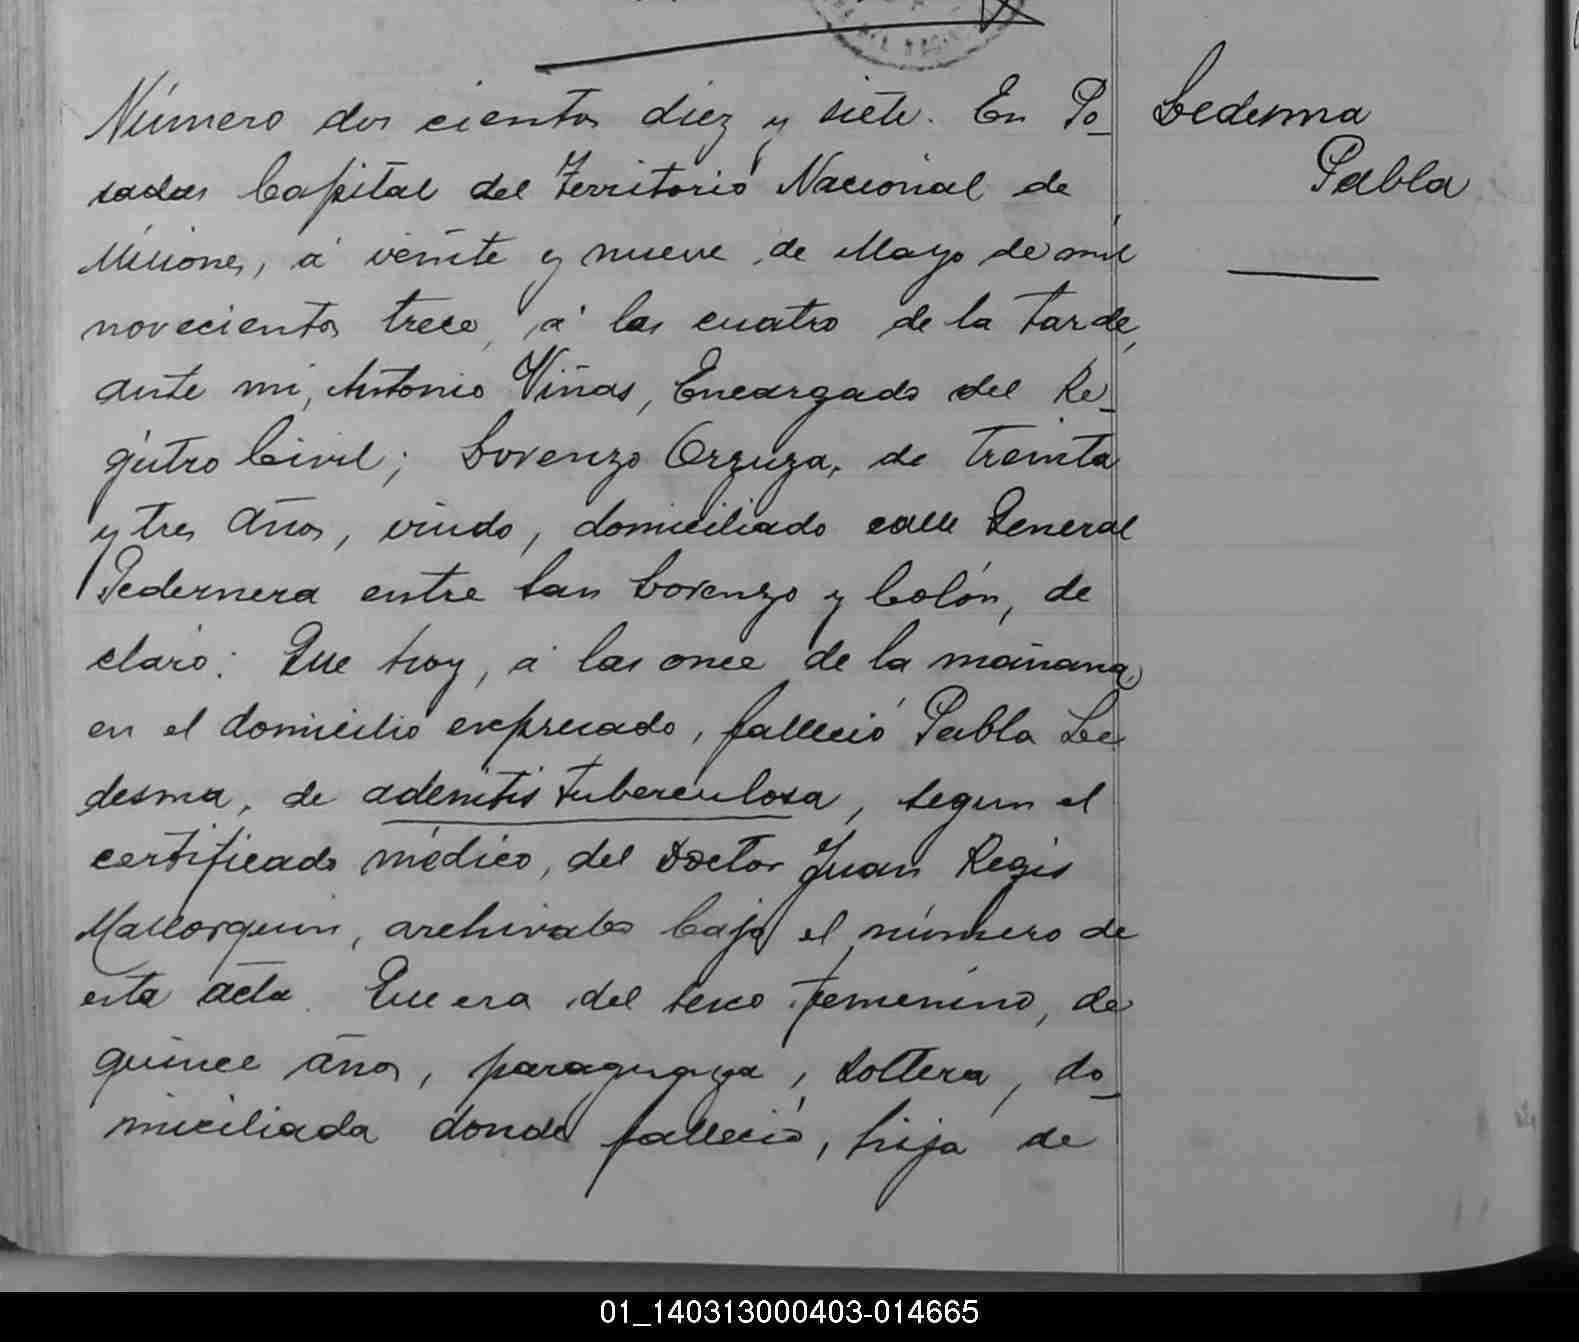 Número dos cientos diez y siete. En Po_
sadas Capital del Territorio Nacional de
Misiones, á veinte y nueve de Mayo de mil
novecientos trece, á las cuatro de la tarde,
ante mi, Antonio Viñas, Encargado del Re_
gistro Civil; Lorenzo Orzuza, de treinta
y tres años, viudo, domiciliado calle General
Pedernera entre San Lorenzo y Colón, de
claró: Que hoy, á las once de la mañana,
en el domicilio expresado, falleció Pabla Le
desma, de adenitis tuberculosa, segun el
certificado médico, del Doctor Juan Regis
Mallorquin, archivado bajo el número de
esta acta. Que era del sexo femenino, de
quince años, paraguaya, soltera, do_
miciliada donde falleció, hija de
Ledesma
Pabla
01_140313000403-014665